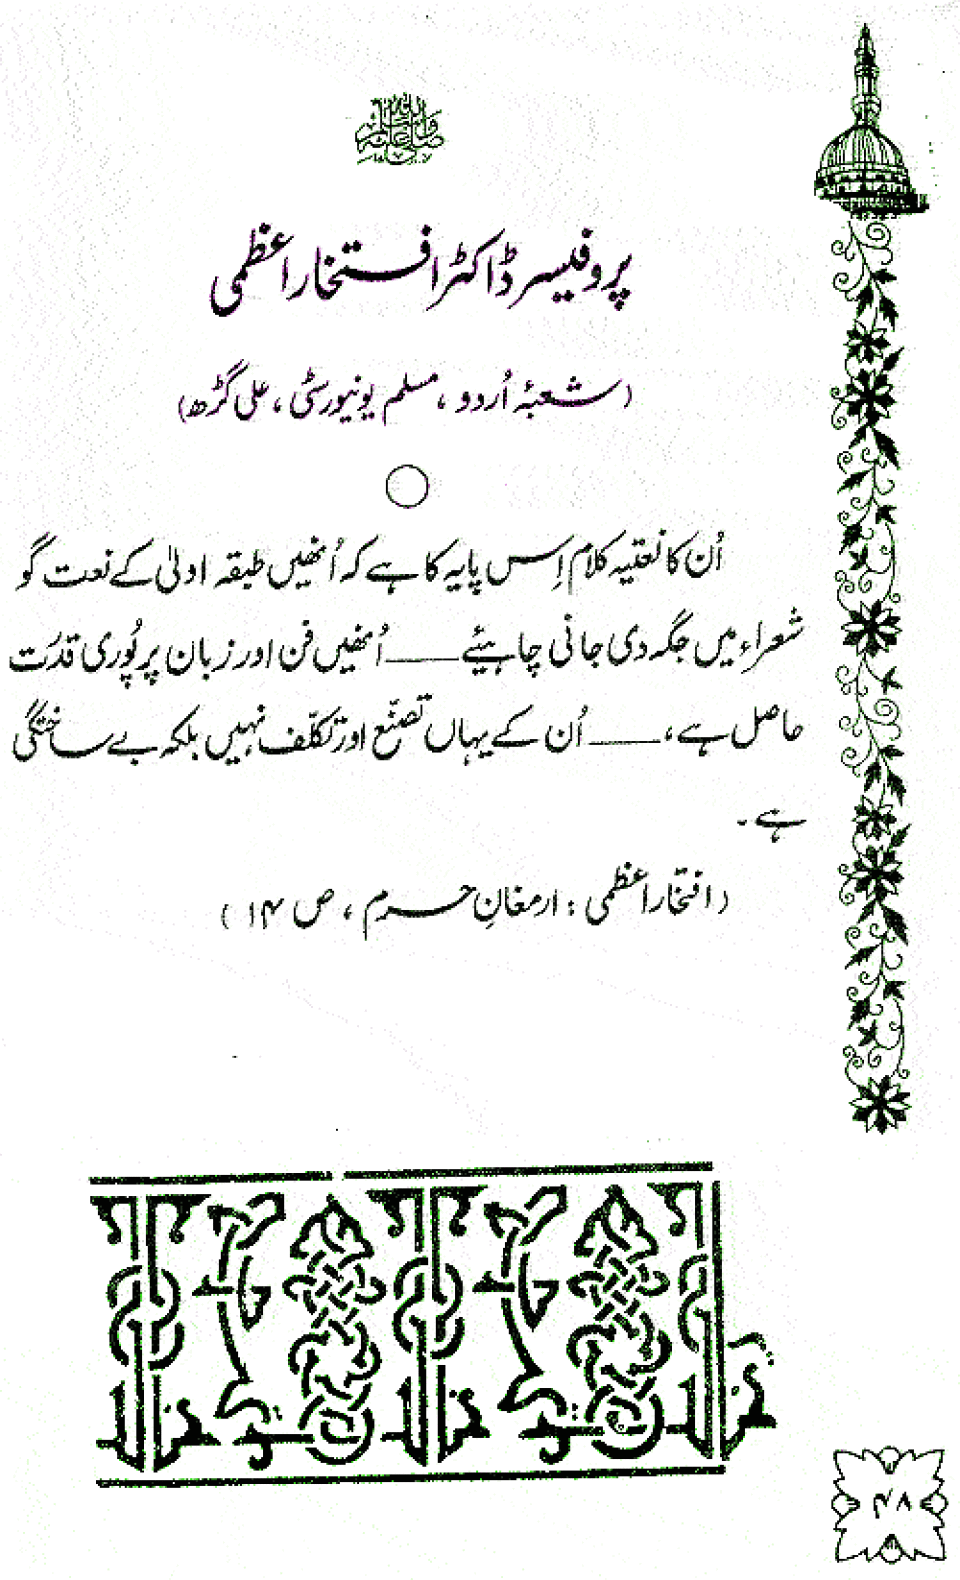 صلی اللہ علیہ وسلم
پروفیسر ڈاکٹر افتخار اعظمی
(شعبۂ اُردو ، مسلم یونیورسٹی ، علی گڑھ)
اُن کا نعتیہ کلام اِس پایہ کا ہے کہ اُنھیں طبقہ اولیٰ کے نعت گو
شعراء میں جگہ دی جانی چاہیئے ـــــ اُنھیں فن اور زبان پر پُوری قدرت
حاصل ہے ، ـــــ اُن کے یہاں تصنّع اور تکلّف نہیں بلکہ بے ساختگی
ہے ۔
( افتخار اعظمی : ارمغانِ حرم ، ص ۱۴ )
۴۸